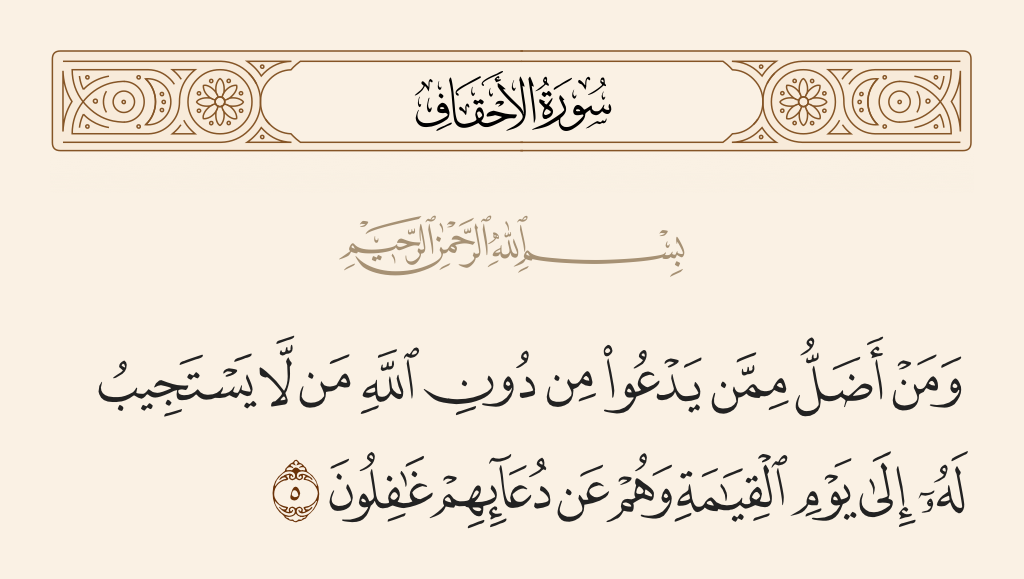 سُورَةُ الأَحْقَافِ
بِسْمِ ٱللَّهِ ٱلرَّحْمَٰنِ ٱلرَّحِيمِ
وَمَنْ أَضَلُّ مِمَّن يَدْعُوا۟ مِن دُونِ ٱللَّهِ مَن لَّا يَسْتَجِيبُ
لَهُۥٓ إِلَىٰ يَوْمِ ٱلْقِيَـٰمَةِ وَهُمْ عَن دُعَآئِهِمْ غَـٰفِلُونَ ٥